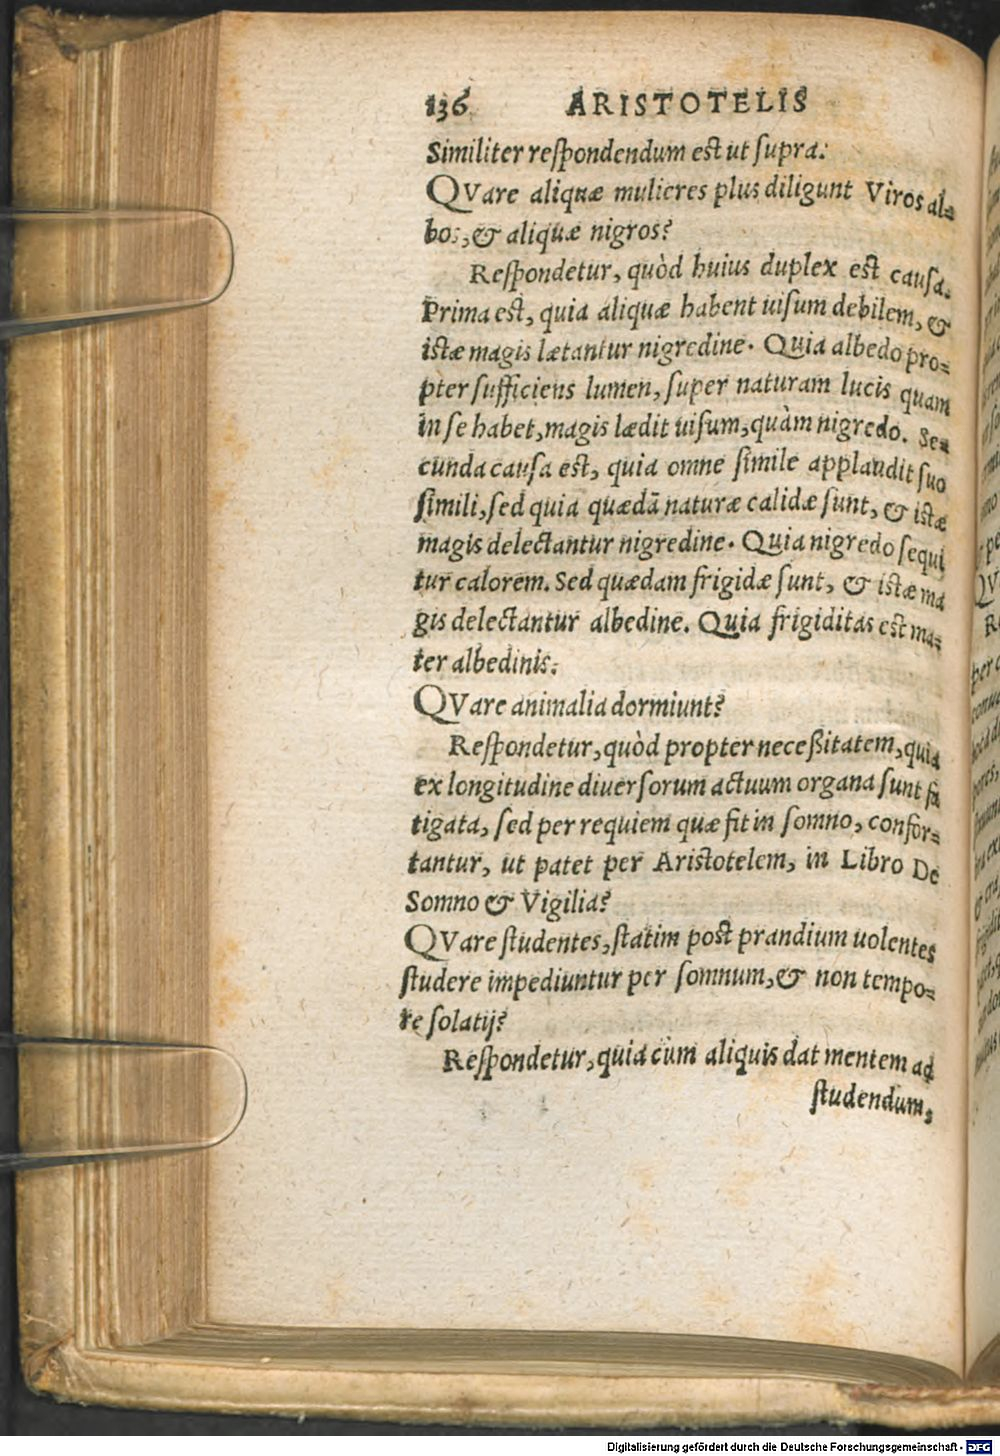 136 ARISTOTELIS
Similiter reſpondendum eſt ut ſupra.
QVare aliquæ mulieres plus diligunt Viros al=
bos, & aliquæ nigros?
Reſpondetur, quòd huius duplex eſt cauſa.
Prima eſt, quia aliquæ habent uiſum debilem, &
iſtæ magis lætantur nigredine. Quia albedo pro=
pter ſufficiens lumen, ſuper naturam lucis quam
in ſe habet, magis lædit uiſum, quàm nigredo. Se=
cunda cauſa eſt, quia omne ſimile applaudit ſuo
ſimili, ſed quia quædã naturæ calidæ ſunt, & iſtæ
magis delectantur nigredine. Quia nigredo ſequi
tur calorem. Sed quædam frigidæ ſunt, & iſtæ ma
gis delectantur albedine. Quia frigiditas eſt ma=
ter albedinis.
QVare animalia dormiunt?
Reſpondetur, quòd propter neceßitatem, quia
ex longitudine diuerſorum actuum organa ſunt fa
tigata, ſed per requiem quæ fit in ſomno, confor=
tantur, ut patet per Ariſtotelem, in Libro De
Somno & Vigilia?
QVare ſtudentes, ſtatim poſt prandium uolentes
ſtudere impediuntur per ſomnum, & non tempo=
re ſolatij?
Reſpondetur, quia cum aliquis dat mentem ad
ſtudendum,
Digitalisierung gefördert durch die Deutsche Forschungsgemeinschaft - DFG